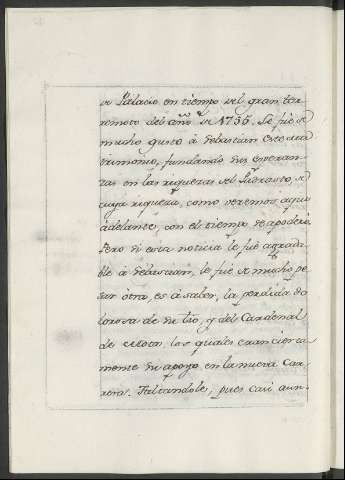 de Palacio en tiempo del gran ter-
remoto del año de 1755. Se fue de
mucho gusto à Sebastian este ma-
trimonio, fundando sus esperan-
zas en las riquezas del Padrasto, de
cuya riqueza, como veremos aqui
adelante, con el tiempo se apoderò.
Pero si esta noticia le fuè agrada-
ble à Sebastian, le fue de mucho pe-
sar otra, es à saber, la perdida do-
lorosa de su tio, y del Cardenal
de que los quales eran cierta-
mente su apoyo en la nueva Car-
rera. Faltandole, pues casi aun-